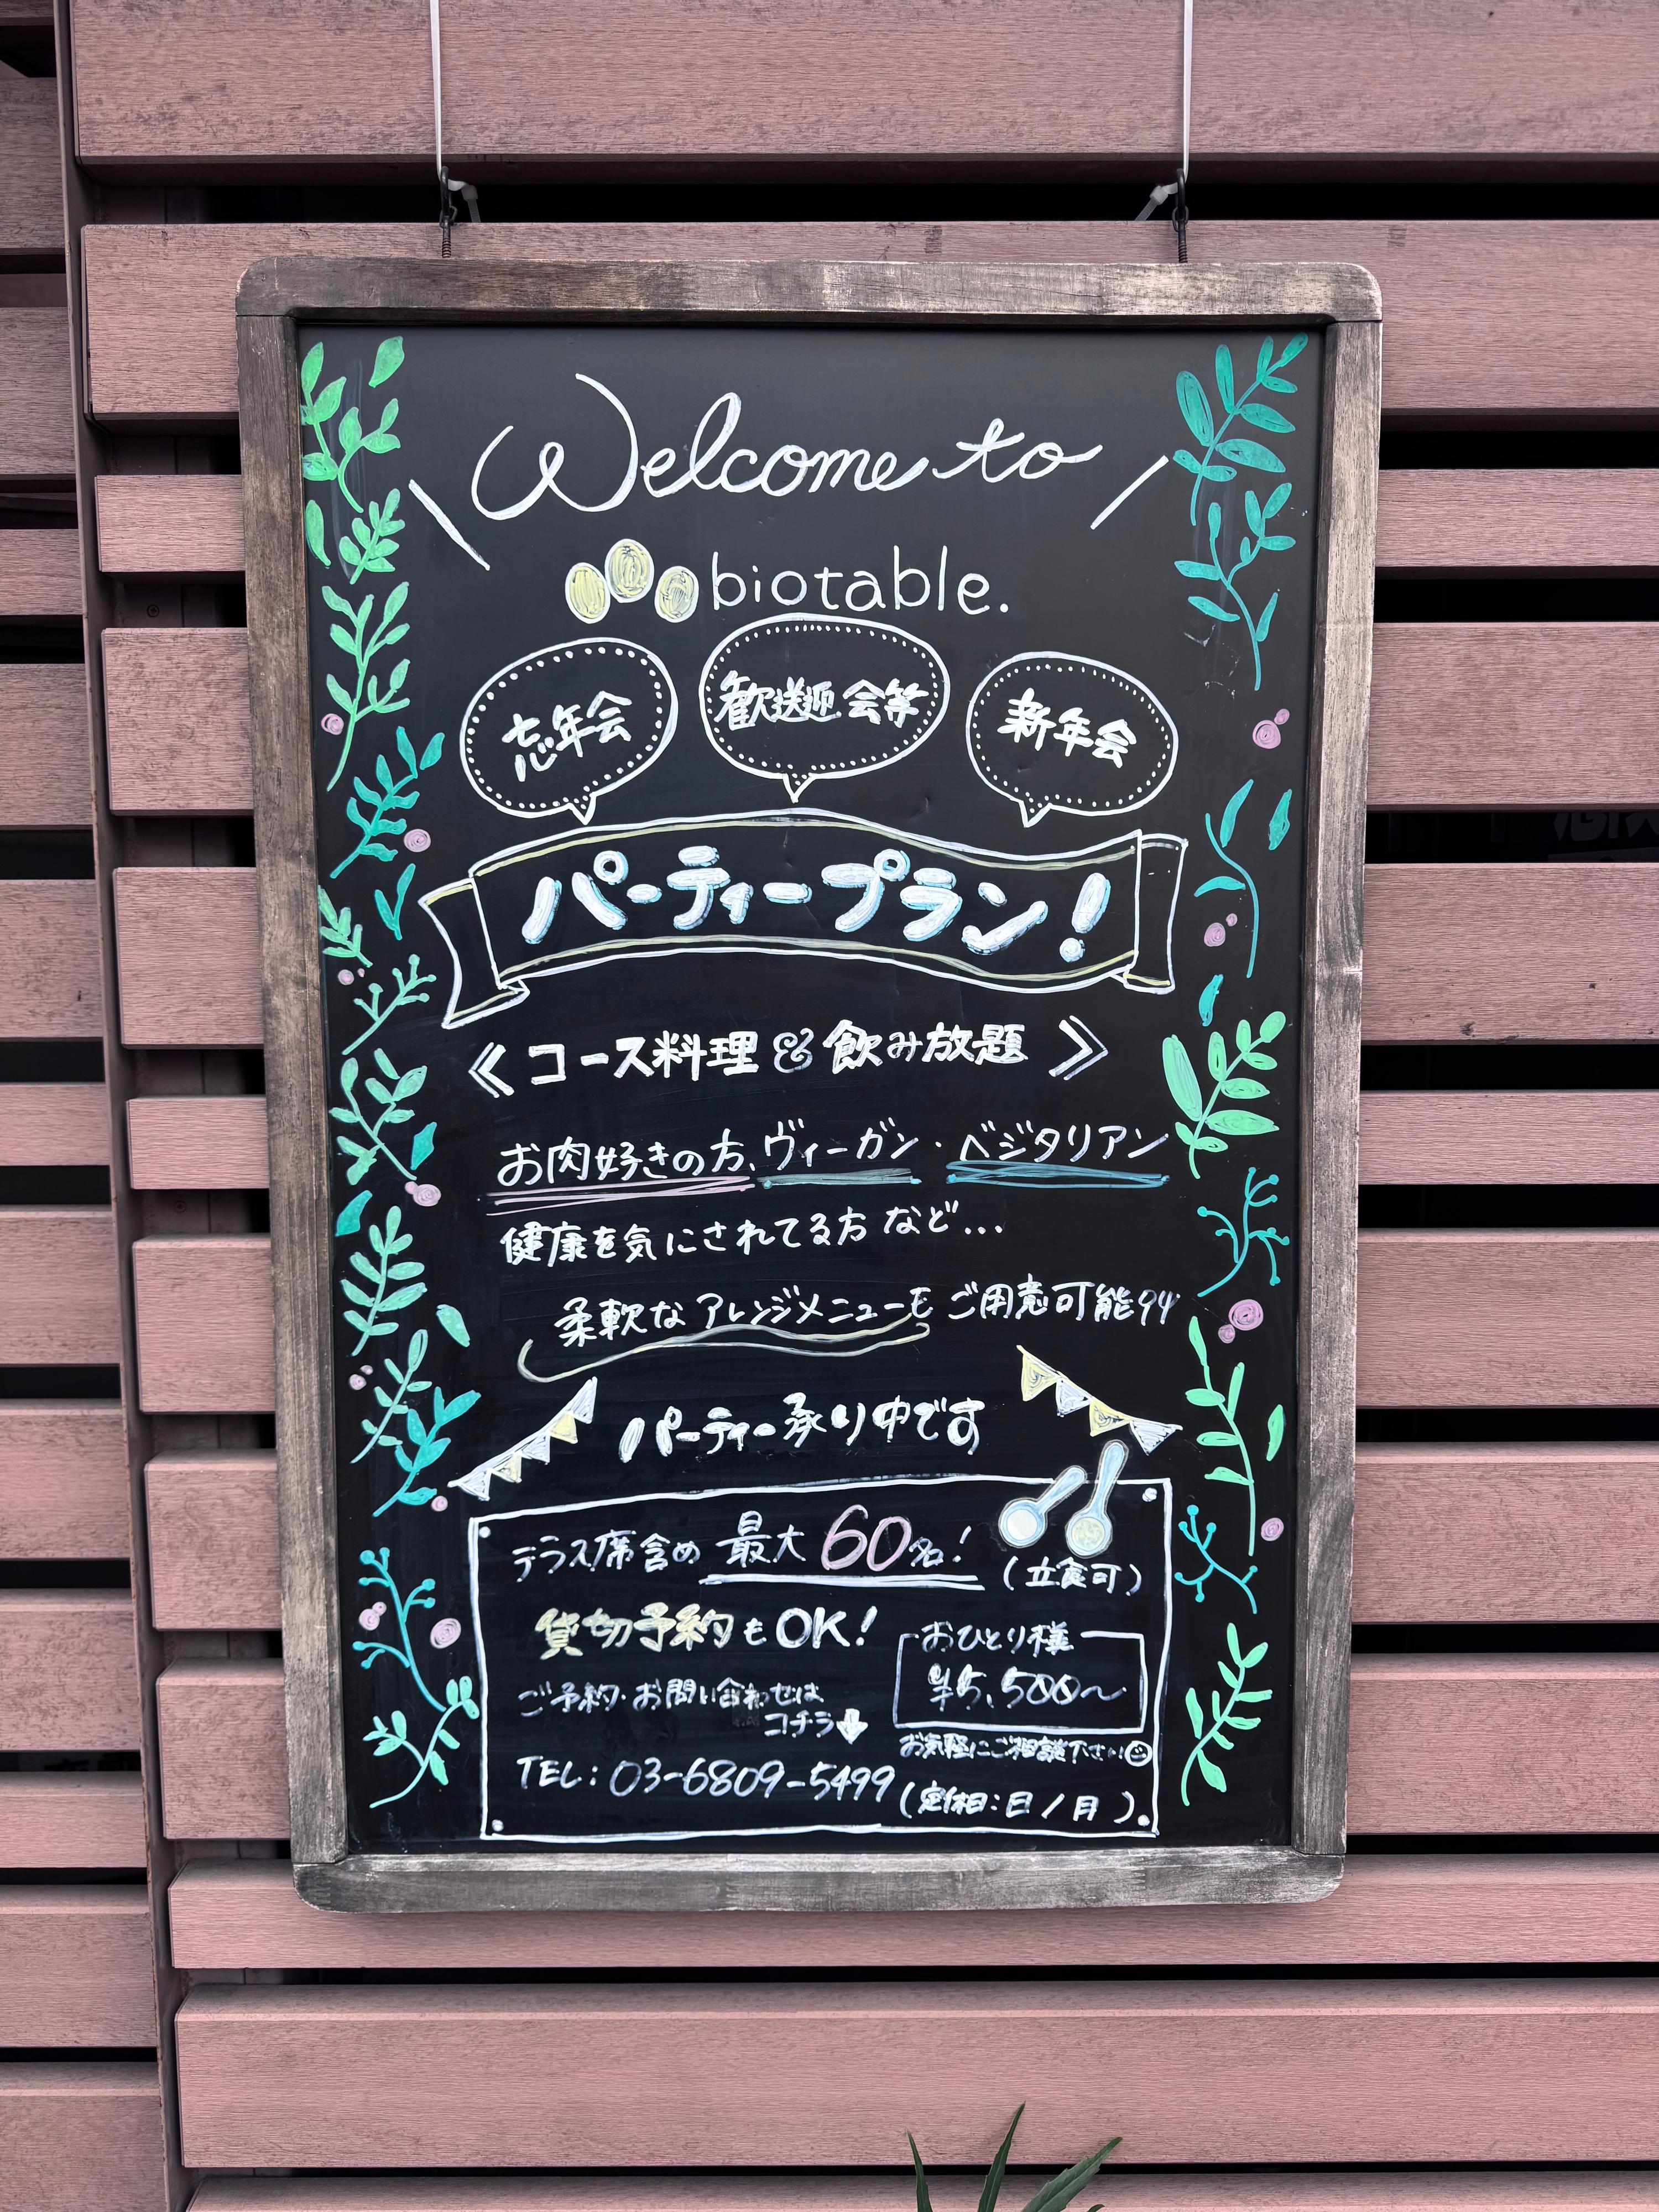 Welcome to
biotable.
忘年会
歓送迎会等
新年会
パーティープラン!
≪ コース料理 & 飲み放題 ≫
お肉好きの方、ヴィーガン・ベジタリアン
健康を気にされてる方 など...
柔軟な アレンジメニューも ご用意可能
パーティー承り中です
テラス席含め 最大 60名!
(立食可)
貸切予約も OK!
おひとり様
¥5,500~
ご予約・お問い合わせは
コチラ↓
お気軽にご相談下さい☺
TEL: 03-6809-5499
(定休日:日/月)